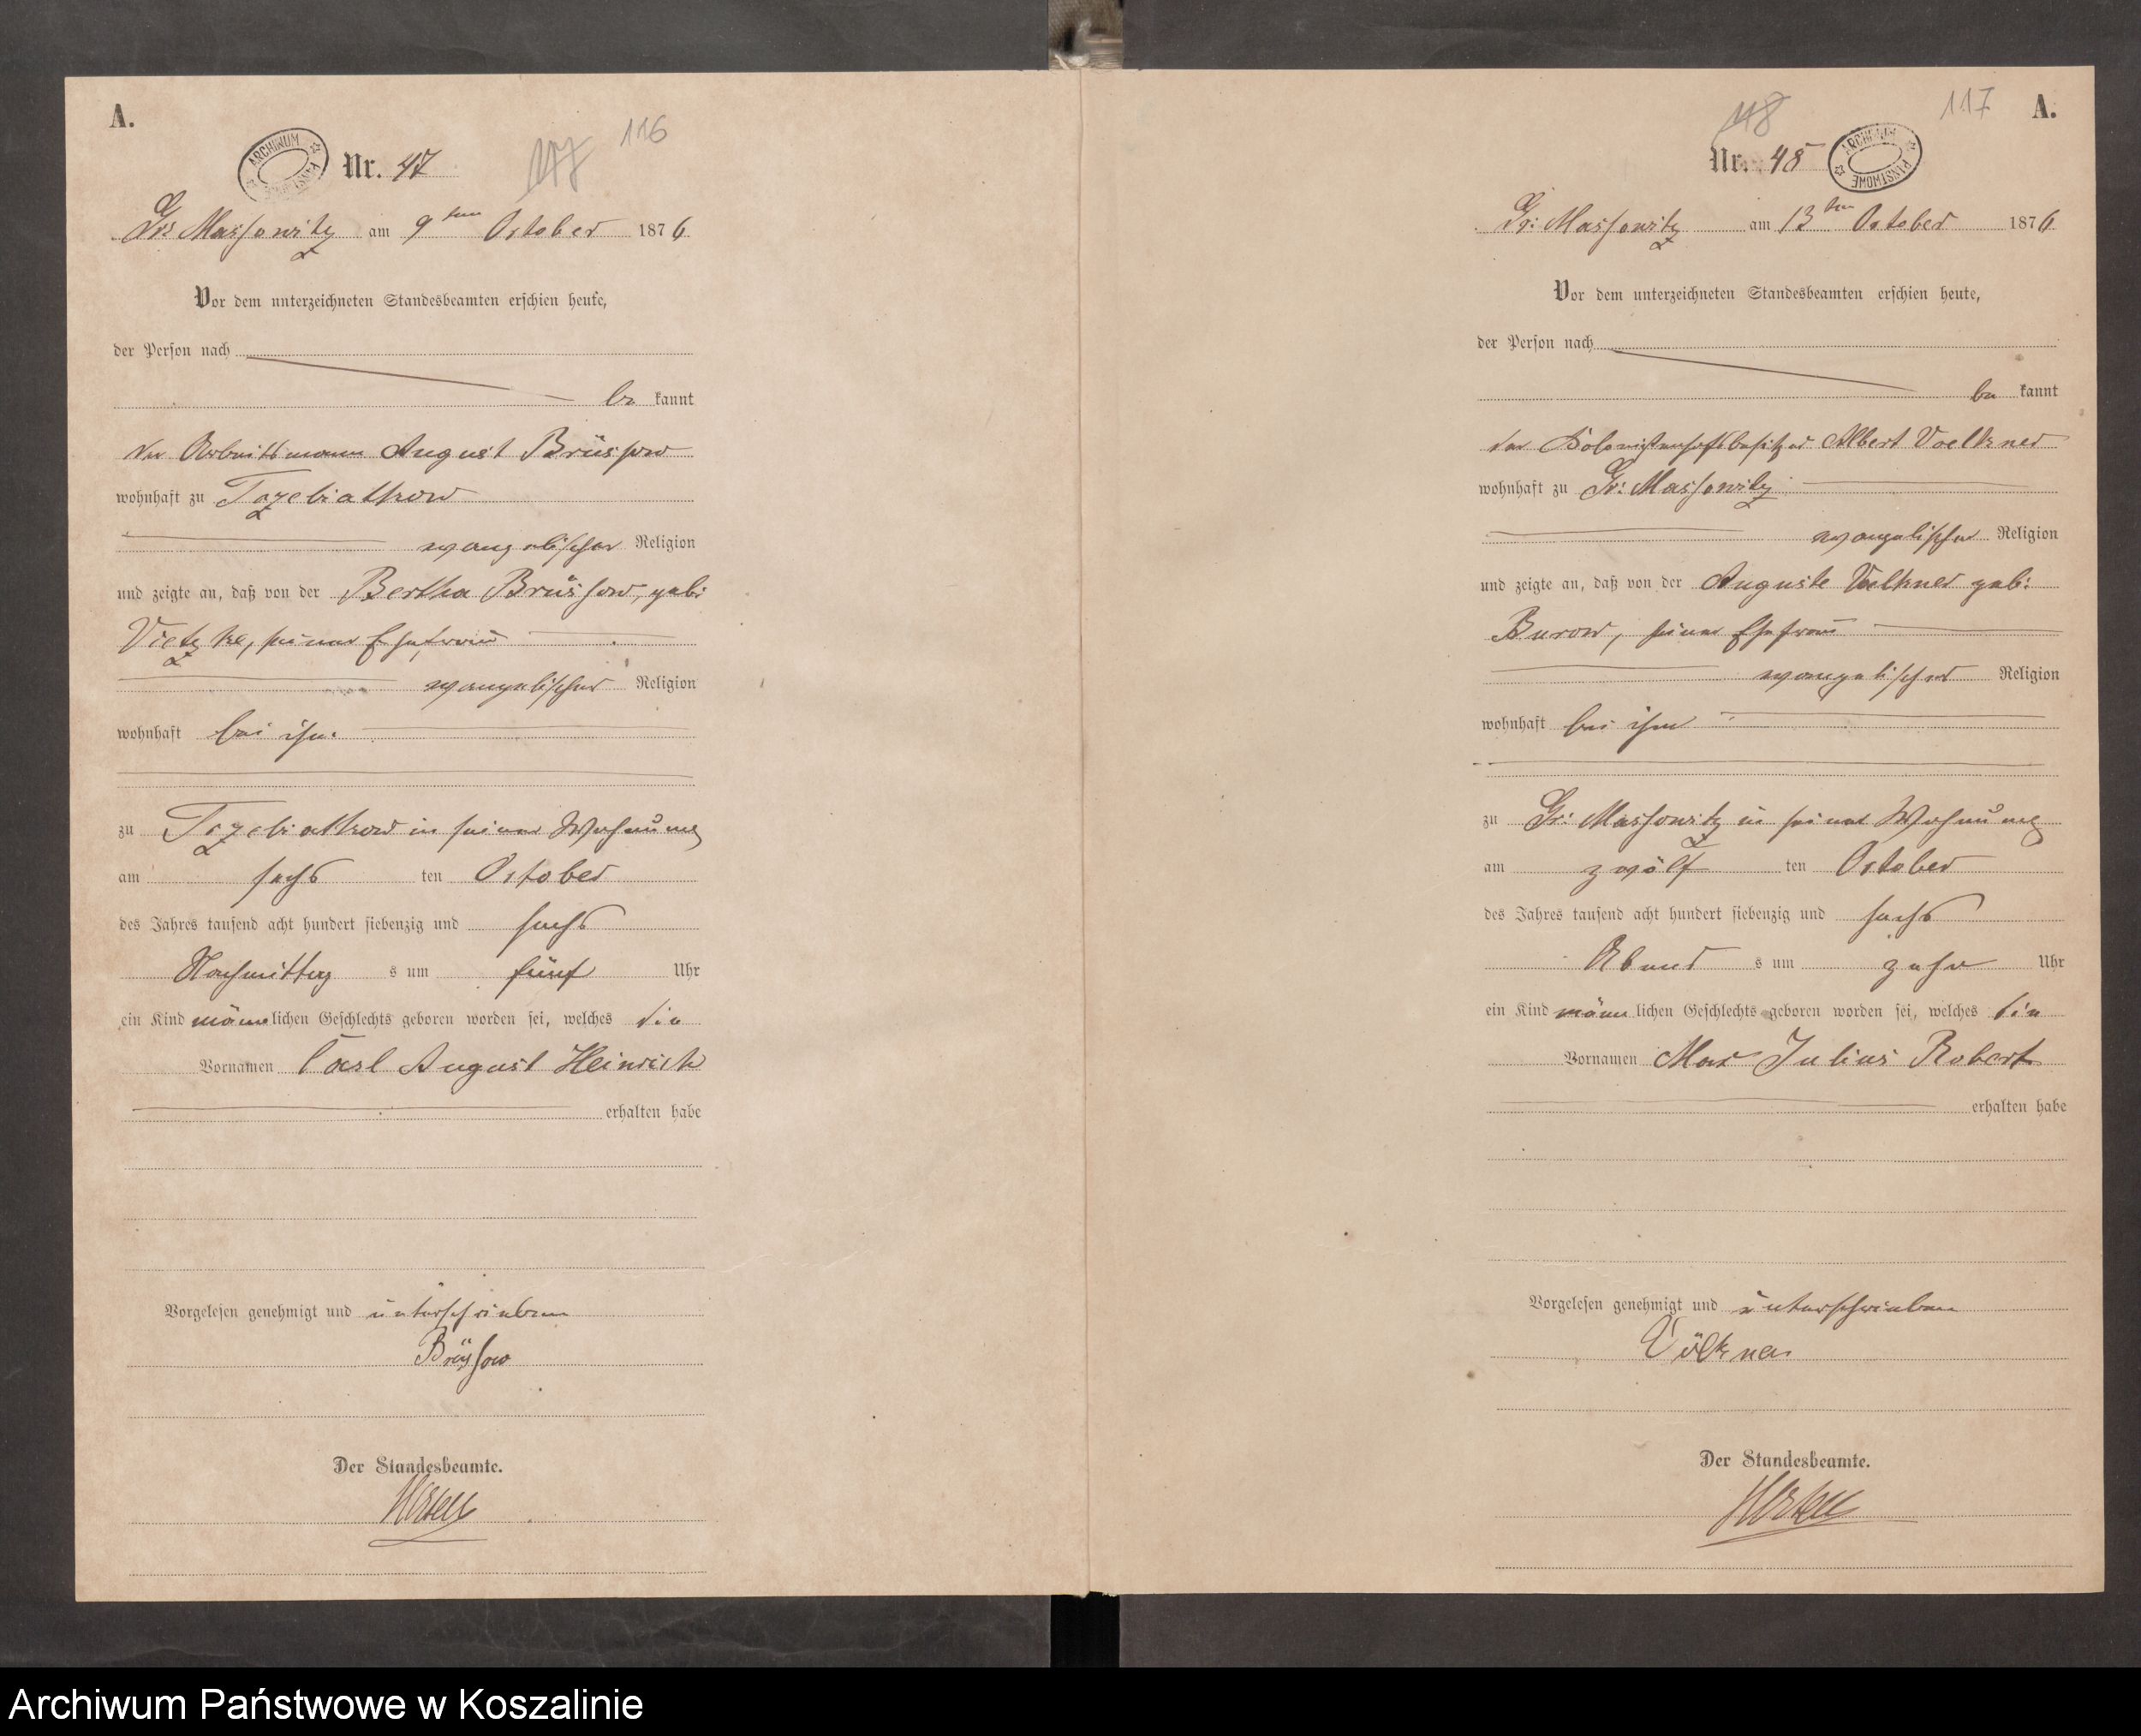 A.
ARCHIWUM PAŃSTWOWE
Nr. 47
117
116
Gr: Massowitz am 9ten October 1876
Vor dem unterzeichneten Standesbeamten erschien heute,
der Person nach
be kannt
der Arbeitsmann August Brüssow
wohnhaft zu Jazebiatkow
evangelischer Religion
und zeigte an, daß von der Bertha Brüssow, geb:
Vietzke, seiner Ehefrau
evangelischer Religion
wohnhaft bei ihm.
zu Jazebiatkow in seiner Wohnung
am sechs ten October
des Jahres tausend acht hundert siebenzig und sechs
Nachmittag s um fünf Uhr
ein Kind männ lichen Geschlechts geboren worden sei, welches die
Vornamen Carl August Heinrich
erhalten habe
Vorgelesen genehmigt und unterschrieben
Brüssow
Der Standesbeamte.
118
117
A.
Nr. 48
ARCHIWUM PAŃSTWOWE
Gr: Massowitz am 13ten October 1876
Vor dem unterzeichneten Standesbeamten erschien heute,
der Person nach
be kannt
der Kolonistenhofsbesitzer Albert Voelkner
wohnhaft zu Gr: Massowitz
evangelischer Religion
und zeigte an, daß von der Auguste Voelkner geb:
Burow, seiner Ehefrau
evangelischer Religion
wohnhaft bei ihm
zu Gr: Massowitz in seiner Wohnung
am zwölf ten October
des Jahres tausend acht hundert siebenzig und sechs
Abend s um zehn Uhr
ein Kind männ lichen Geschlechts geboren worden sei, welches die
Vornamen Max Julius Robert
erhalten habe
Vorgelesen genehmigt und unterschrieben
Völkner
Der Standesbeamte.
Archiwum Państwowe w Koszalinie